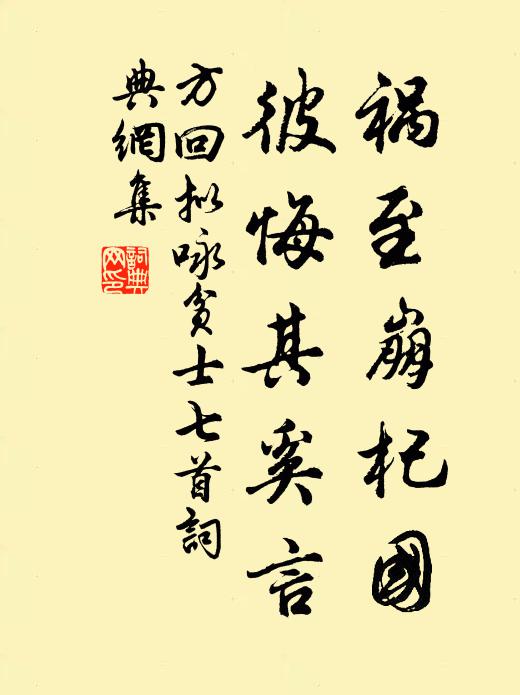 祸至崩杞國
彼悔其奚言
方回拟咏贫士七首詞
典網集
詞典
网印